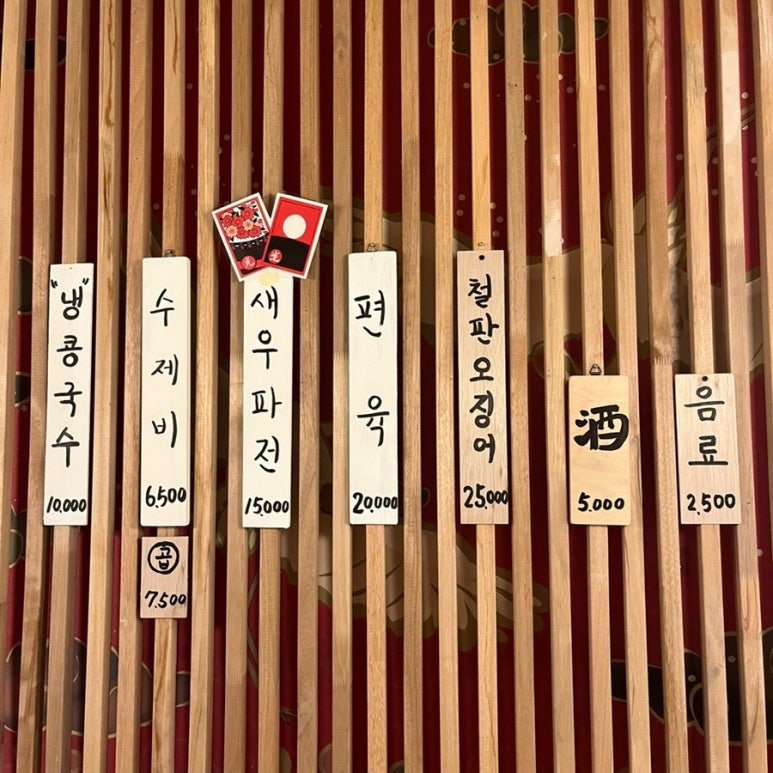 "냉"콩국수
10,000
수제비
6,500
곱
7,500
새우파전
15,000
편육
20,000
철판오징어
25,000
酒
5,000
음료
2,500